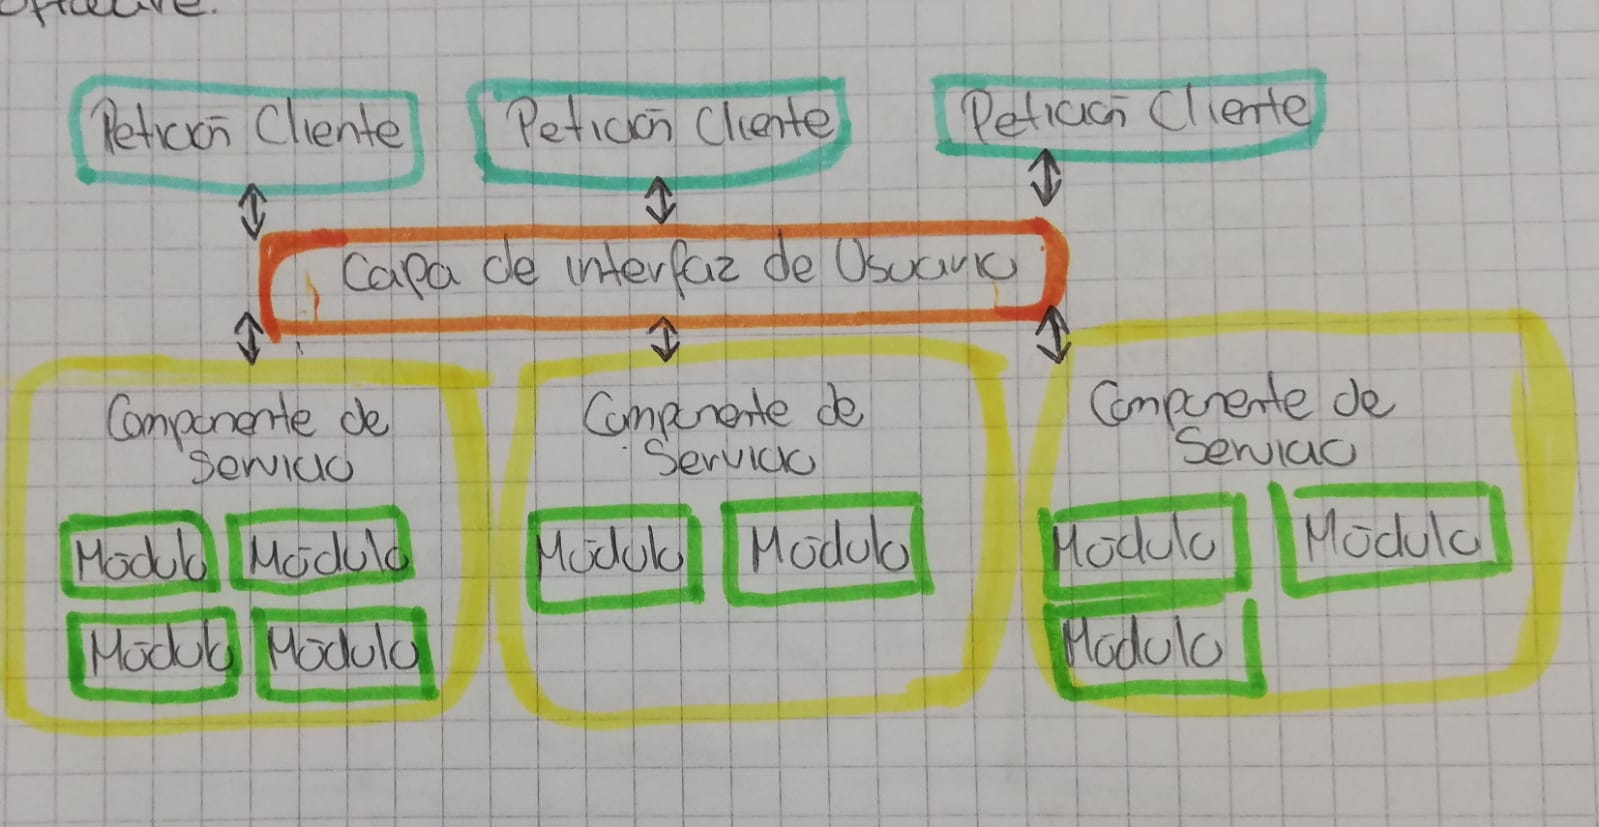 Petición Cliente
Petición Cliente
Petición Cliente
Capa de interfaz de Usuario
Componente de
Servicio
Módulo Módulo
Módulo Módulo
Componente de
Servicio
Módulo Módulo
Componente de
Servicio
Módulo Módulo
Módulo